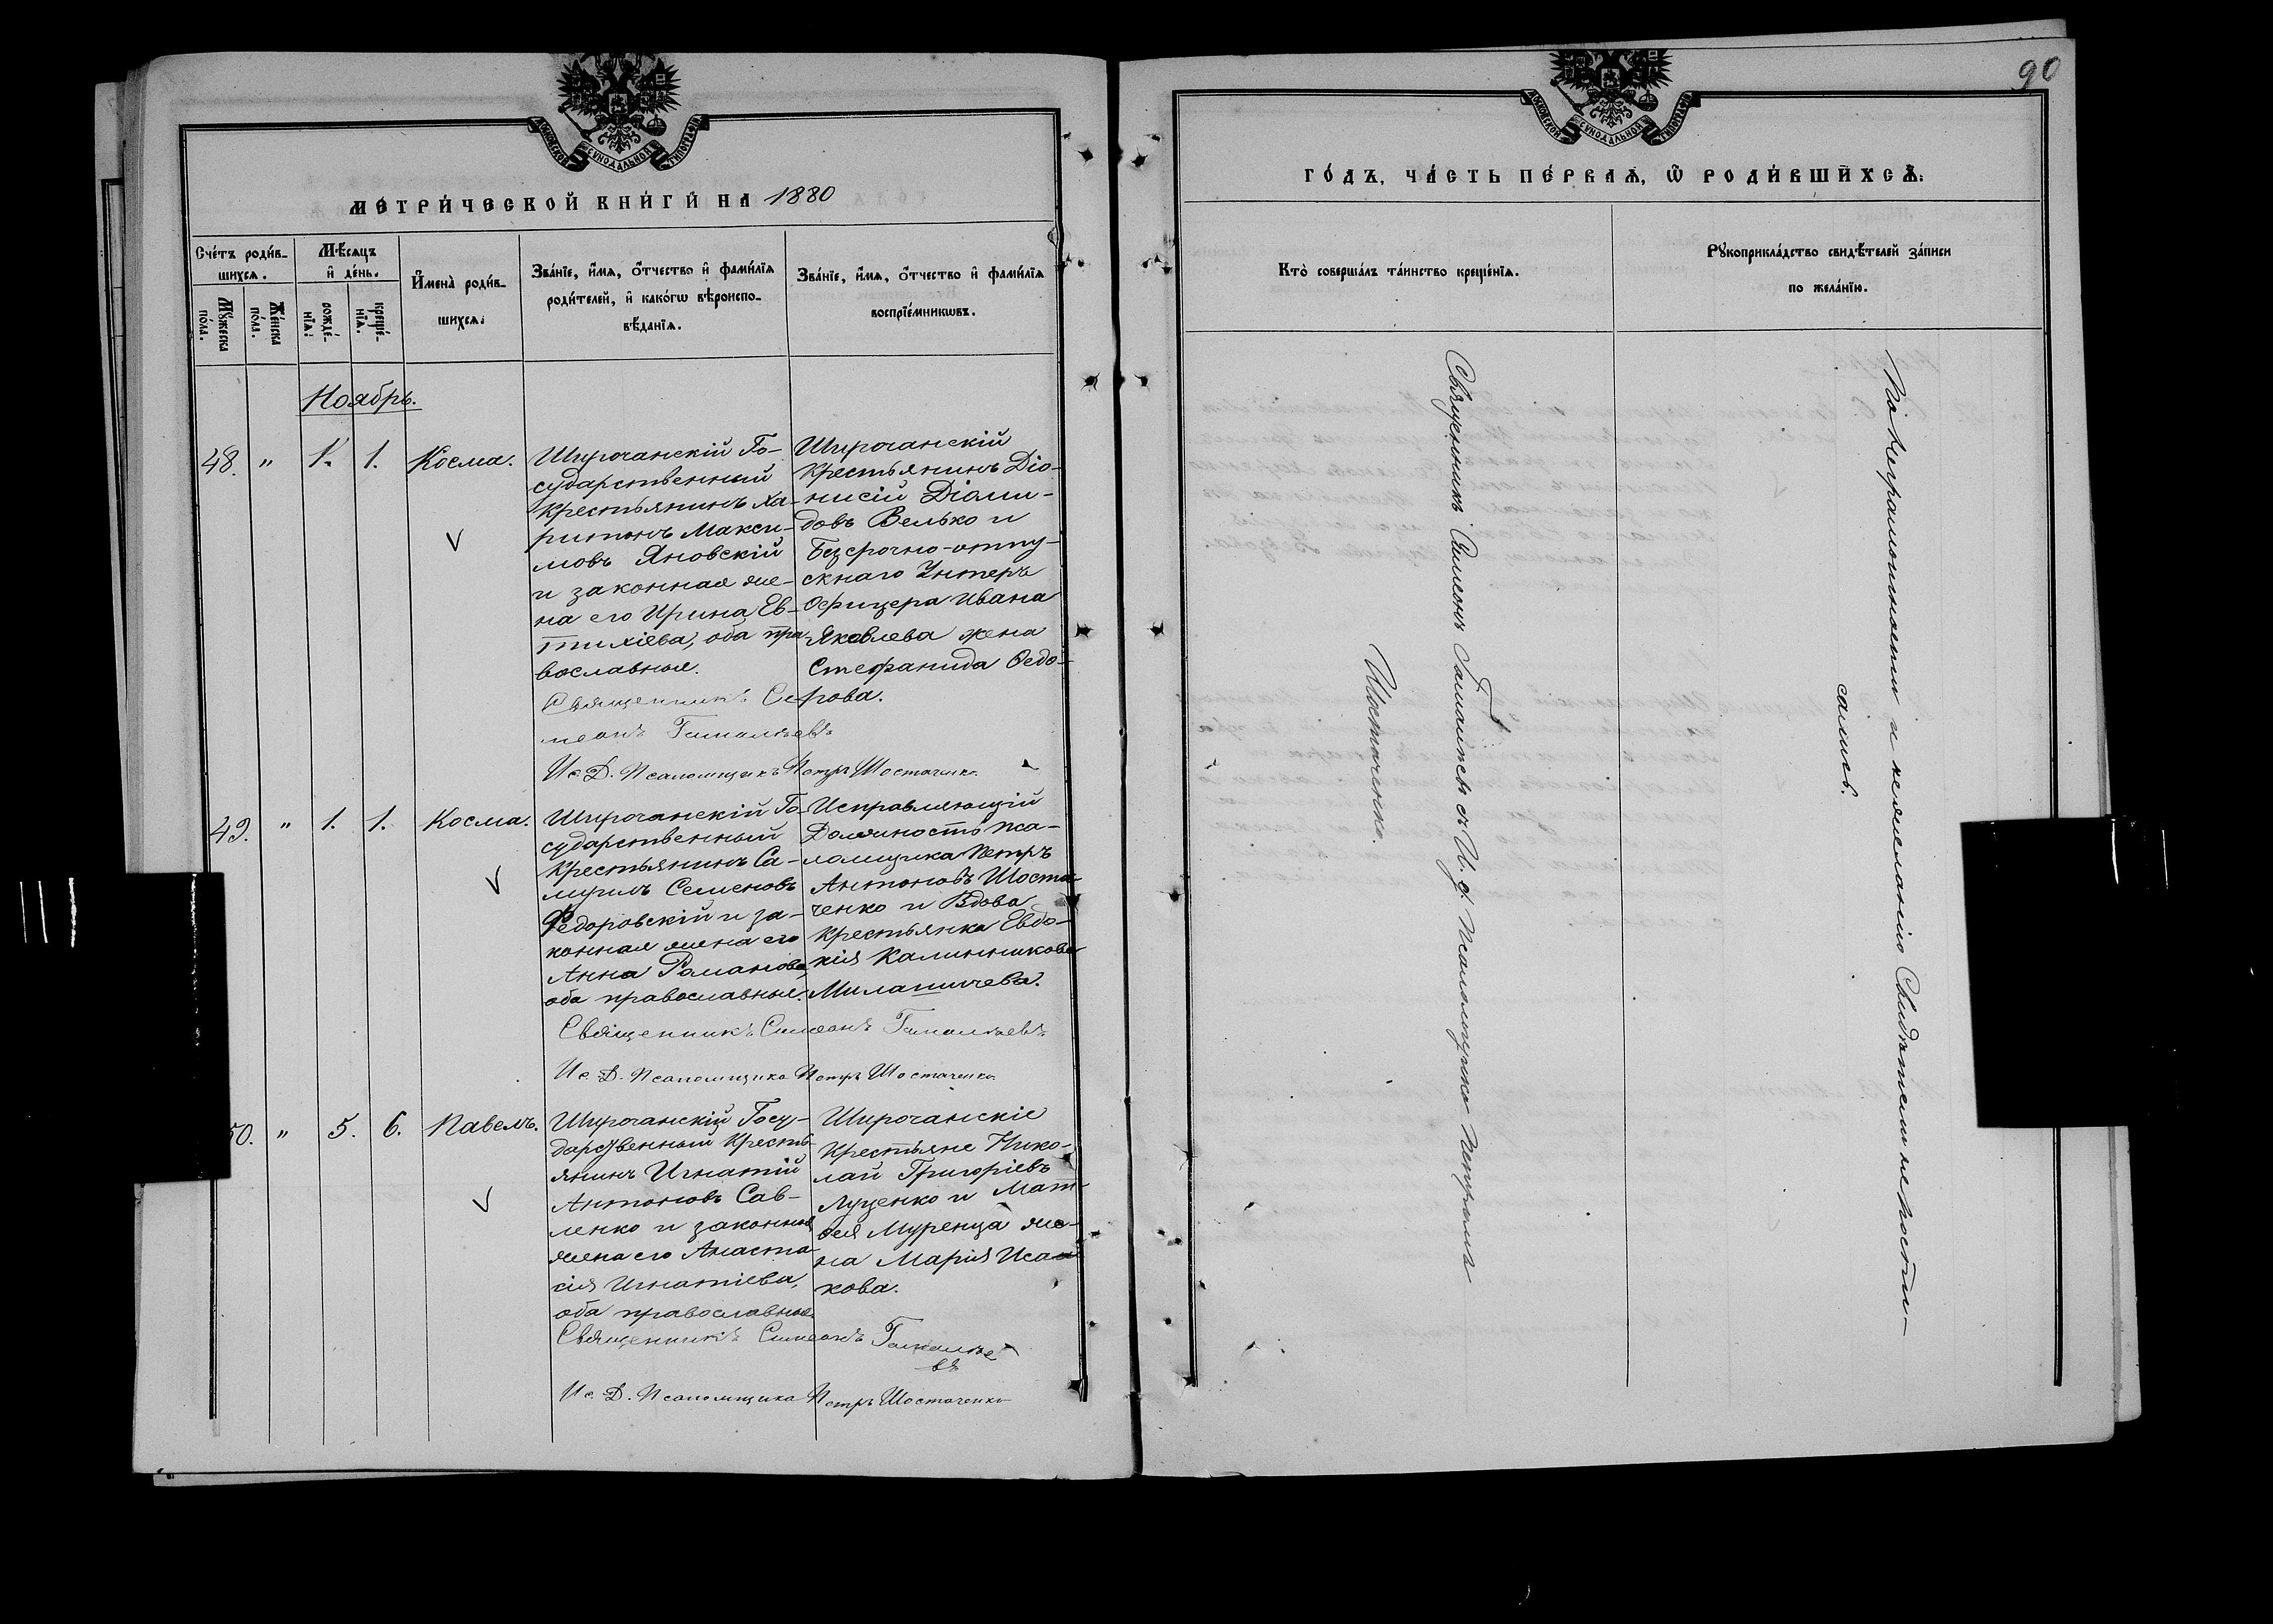 МОСКОВСКОЙ СѴНОДАЛЬНОЙ ТИПОГРАФІИ
МЕТРИ́ЧЕСКОЙ КНИ́ГИ НА 1880
Сче́тъ роди́в-
шихся.
Му́жеска по́ла.
Же́нска по́ла.
Мѣ́сяцъ
и҆ де́нь.
рожде́-
нїя:
креще́-
нїя.
И҆мена̀ роди́в-
шихся:
Зва́нїе, и҆́мя, ѻ҆́тчество и҆ фами́лїя
роди́телей, и҆ како́гѡ вѣроиспо-
вѣ́данїя.
Зва́нїе, и҆́мя, ѻ҆́тчество и҆ фами́лїя
воспрїе́мникѡвъ.
Ноябрь.
48. " 1. 1. Косма.
Широчанскій Го-
сударственный
Крестьянинъ Ха-
ритонъ Макси-
мовъ Яновскій
и законная же-
на его Ирина Ев-
тихіева, оба пра-
вославные.
Широчанскій
Крестьянинъ Діо-
нисій Діоми-
довъ Велько и
Безсрочно-отпу-
скнаго Унтеръ
Офицера Ивана
Яковлева жена
Стефанида Ѳедо-
рова.
Священникъ Си-
меонъ Гамалѣевъ
Ис. Д. Псаломщика Петръ Шостаченко
49. " 1. 1. Косма.
Широчанскій Го-
сударственный
Крестьянинъ Са-
муилъ Семеновъ
Федоровскій и за-
конная жена его
Анна Романова,
оба православные.
Исправляющій
Должность Пса-
ломщика Петръ
Антоновъ Шоста-
ченко и Вдова
Крестьянка Евдо-
кія Калинникова
Миланичева.
Священникъ Симеонъ Гамалѣевъ
Ис. Д. Псаломщика Петръ Шостаченко
50. " 5. 6. Павелъ.
Широчанскій Госу-
дарственный Кресть-
янинъ Игнатій
Антоновъ Сав-
ленко и законная
жена его Анаста-
сія Игнатіева,
оба православные
Широчанскіе
Крестьяне Нико-
лай Григоріевъ
Луценко и Мат-
ѳея Муренца же-
на Марія Исаа-
кова.
Священникъ Симеонъ Гамалѣе
въ
Ис. Д. Псаломщика Петръ Шостаченко
90
МОСКОВСКОЙ СѴНОДАЛЬНОЙ ТИПОГРАФІИ
ГО́ДЪ, ЧА́СТЬ ПЕ́РВАЯ, Ѡ҆ РОДИ́ВШИХСЯ:
Кто̀ соверша́лъ та́инство креще́нїя.
Рꙋкоприкла́дство свидѣ́телей за́писи
по жела́нїю.
Священникъ Симеонъ Гамалѣевъ съ И. д. Псаломщика Петромъ
Шостаченко.
По неграмотности и нежеланію Свидѣтели не подпи-
сались.